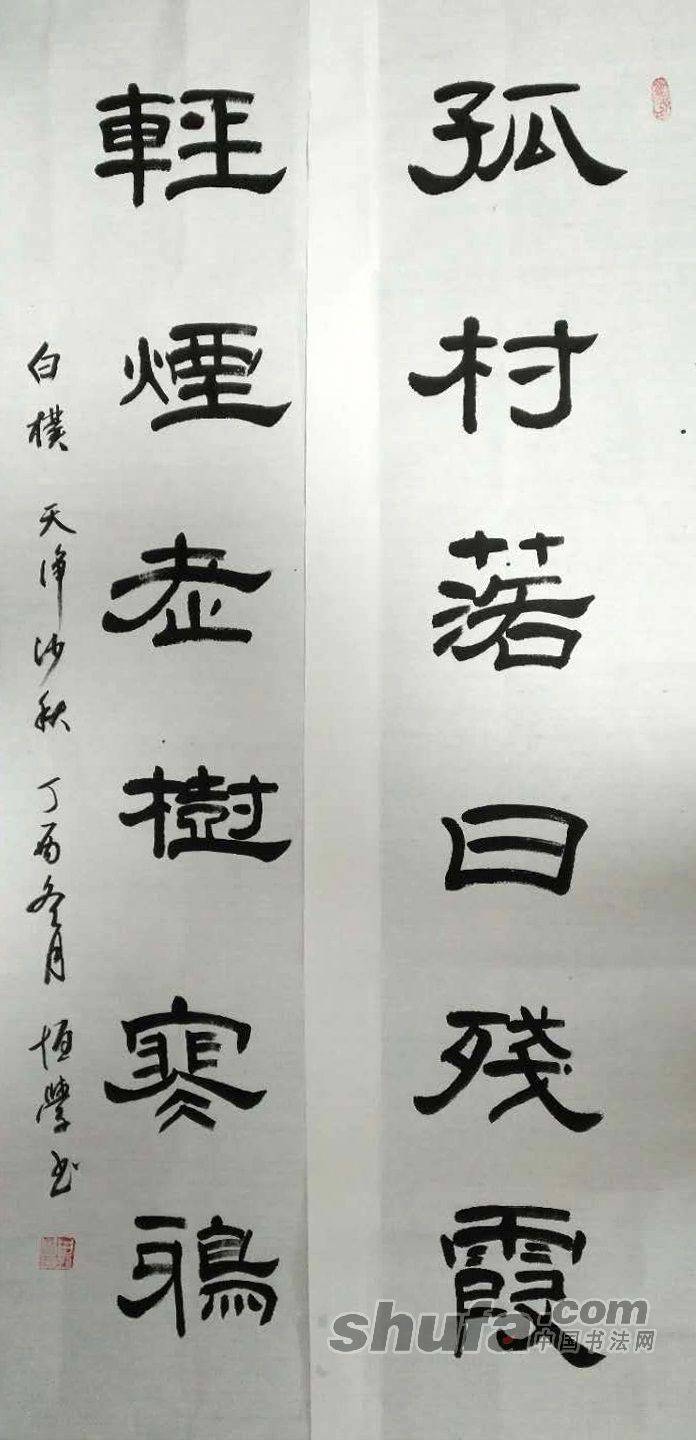 孤村落日殘霞
輕煙老樹寒鴉
白樸 天淨沙秋 丁酉冬月 恒學书
shufa.com
中国书法网